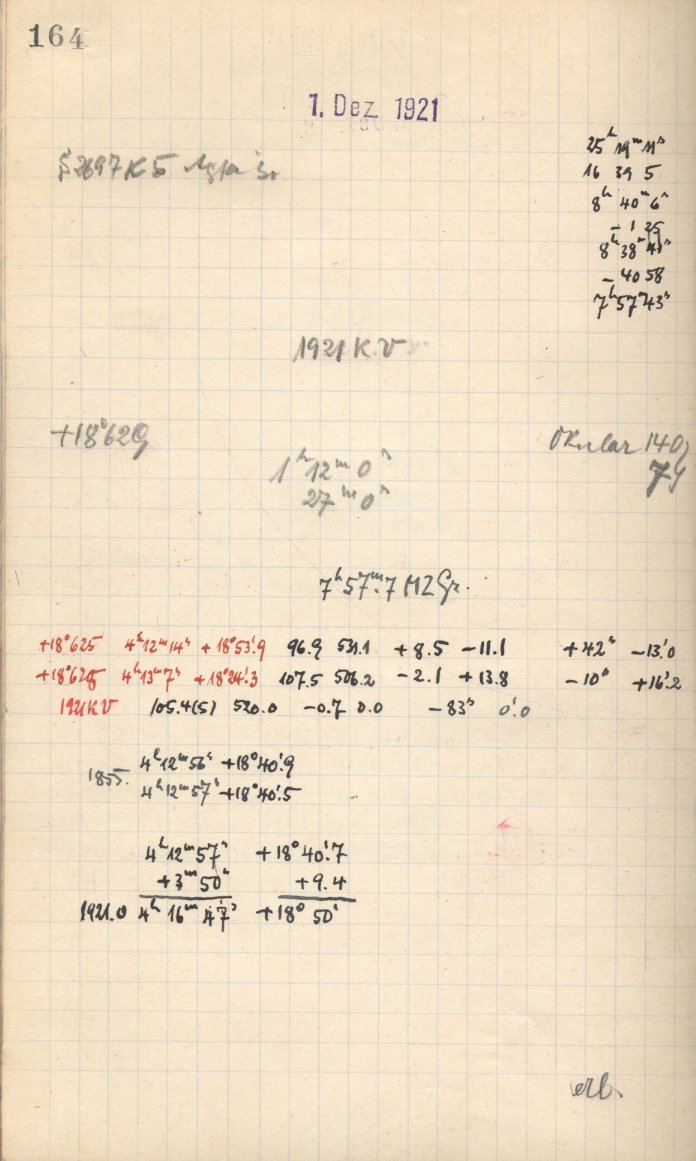 164
1. Dez. 1921
25ʰ 19ᵐ 11ˢ
16 39 5
8ʰ 40ᵐ 6ˢ
- 1 25
8ʰ 38ᵐ 41ˢ
- 40 58
7ʰ 57ᵐ 43ˢ
1921 K.V
+18°628
Okular 140
1ʰ 12ᵐ 0ˢ
27ᵐ 0ˢ
7ʰ 57ᵐ.7 MZ Gr.
+18°625 4ʰ12ᵐ14ˢ +18°53'.9 96.9 531.1 +8.5 -11.1 +42ˢ -13'.0
+18°628 4ʰ13ᵐ7ˢ +18°24'.3 107.5 506.2 -2.1 +13.8 -10ˢ +16'.2
1921 KV 105.4(5) 520.0 -0.7 0.0 -83ˢ 0'.0
1855. 4ʰ12ᵐ56ˢ +18°40'.9
4ʰ12ᵐ57ˢ +18°40'.5
4ʰ12ᵐ57ˢ +18°40'.7
+3ᵐ50ˢ +9.4
1921.0 4ʰ 16ᵐ 47ˢ +18° 50'
erl.